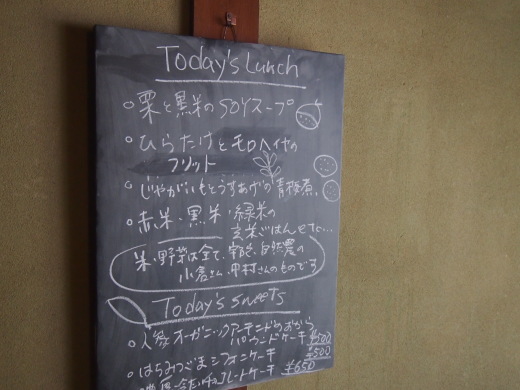 Today's Lunch
○栗と黒米のSOYスープ
○ひらたけとモロヘイヤの
フリット
○じゃがいもとうすあげの青梅煮
○赤米・黒米・緑米の
玄米ごはん
米・野菜は全て、自然農の
小倉さん、中村さんのものです
Today's sweets
○人参とオーガニックアーモンドのおから
パウンドケーキ ¥500
○はちみつごまシフォンケーキ ¥500
チョコレートケーキ ¥650